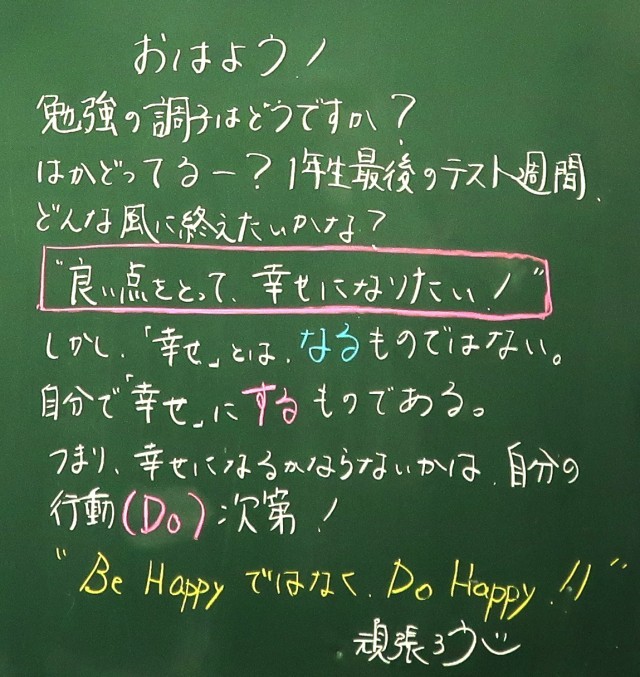 おはよう！
勉強の調子はどうですか？
はかどってるー？1年生最後のテスト週間、
どんな風に終えたいかな？
"良い点をとって、幸せになりたい！"
しかし、「幸せ」とは、なるものではない。
自分で「幸せ」にするものである。
つまり、幸せになるかならないかは、自分の
行動(Do)次第！
"Be Happyではなく、Do Happy!!"
頑張ろう